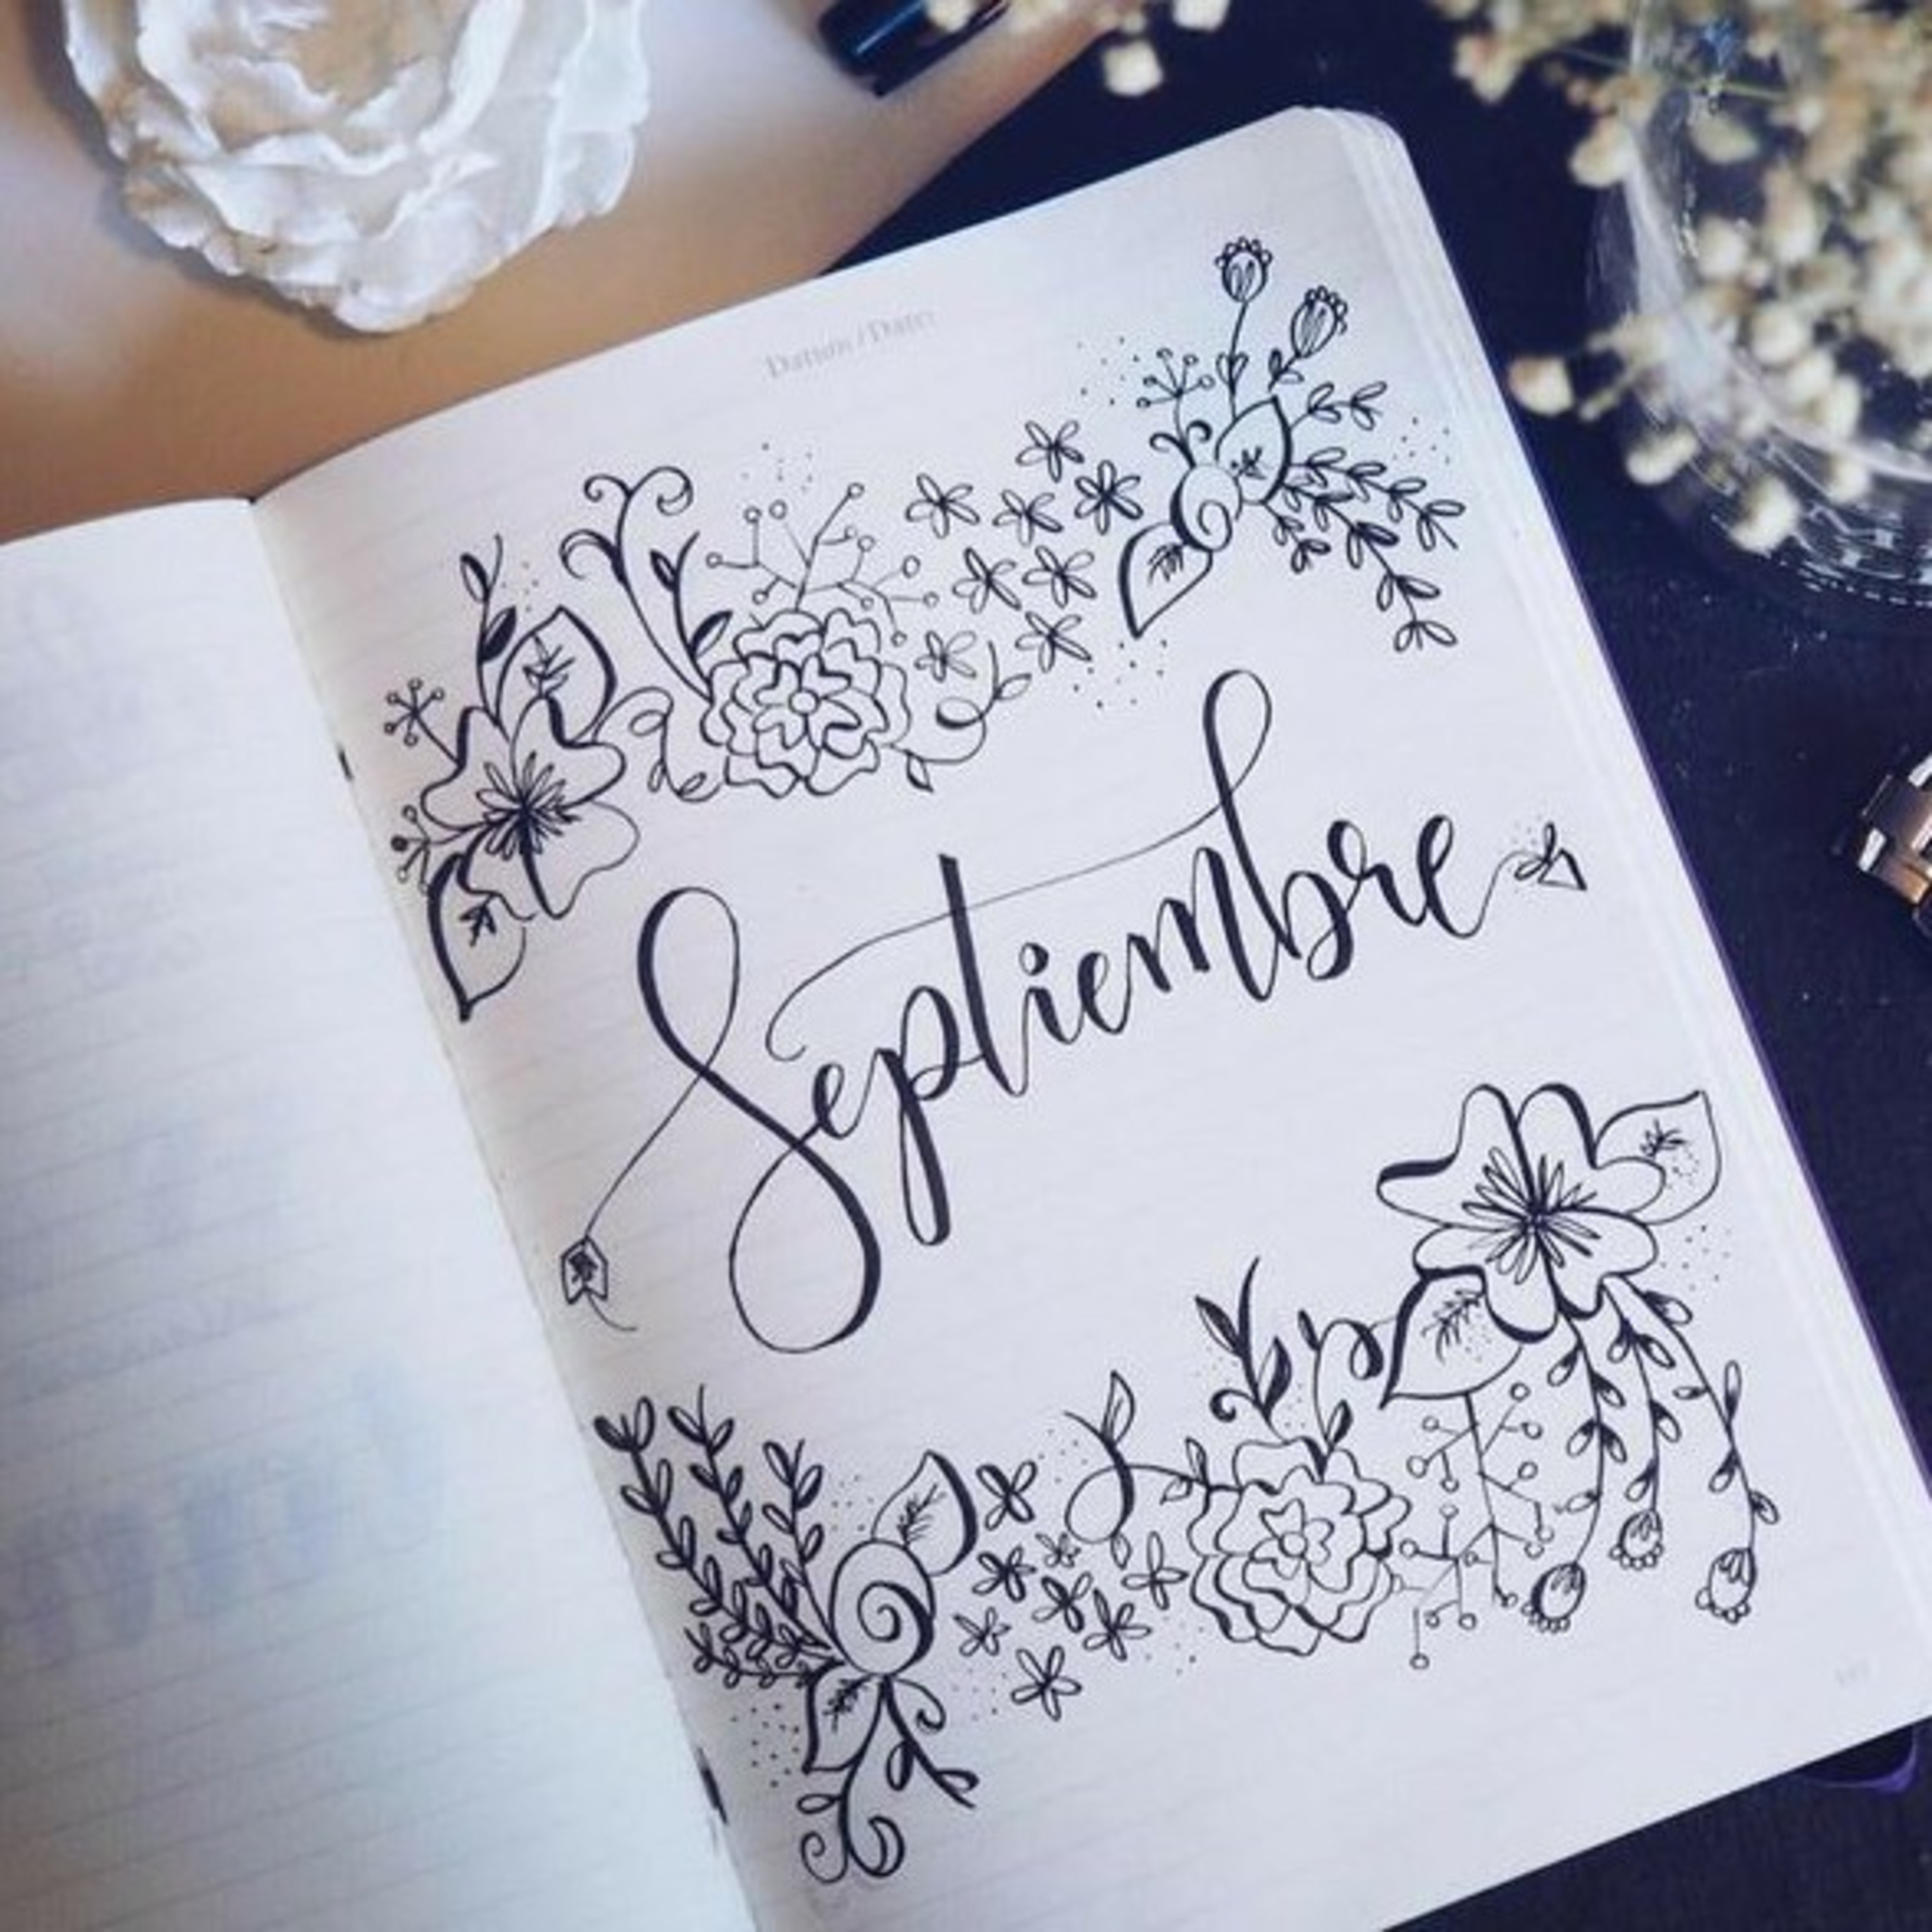 Datum / Date:
Septiembre